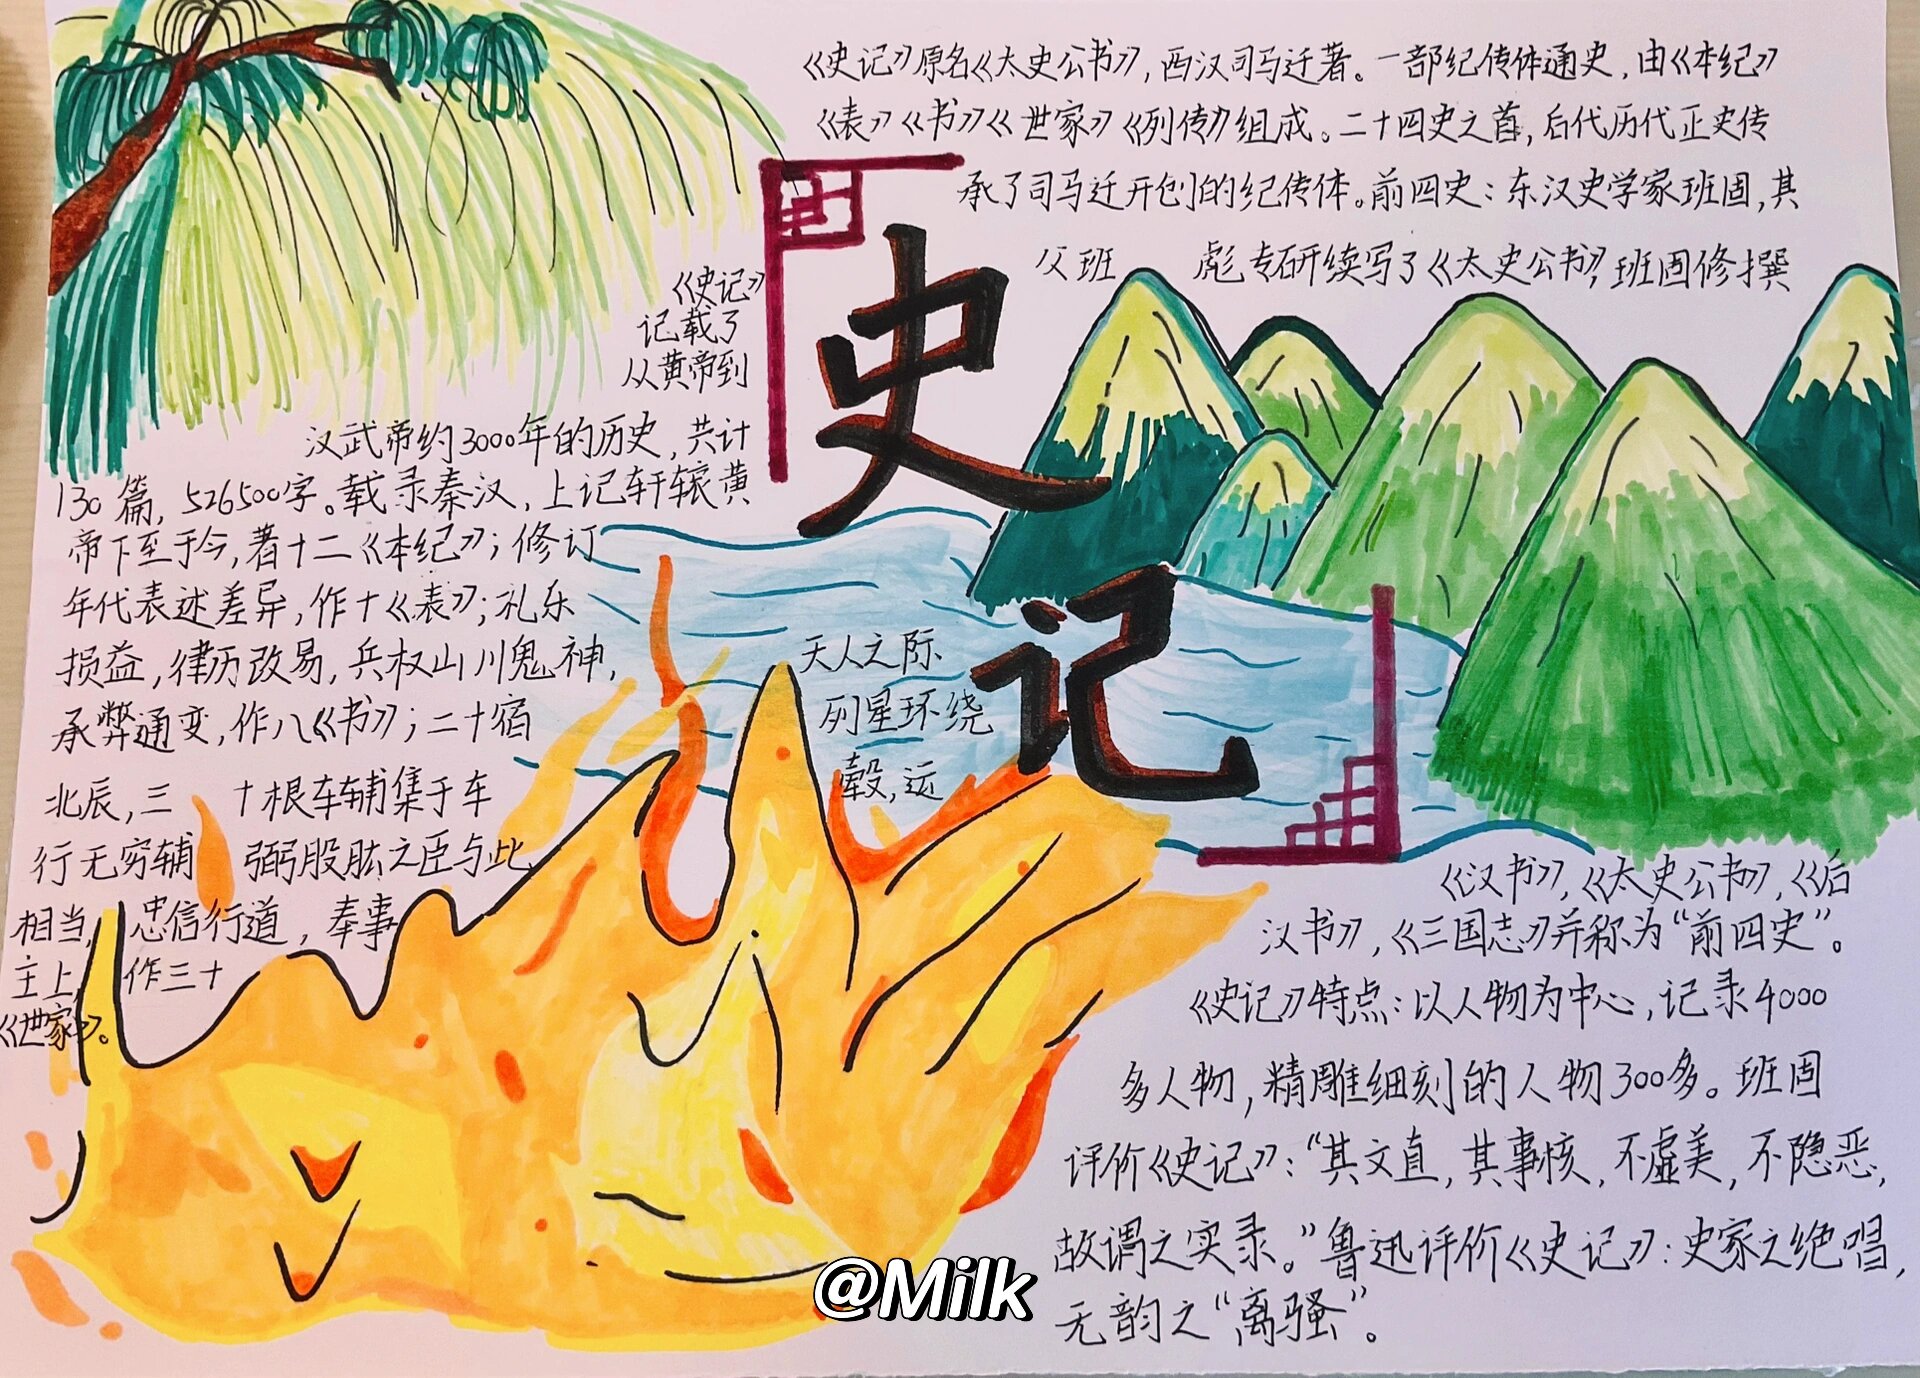 《史记》原名《太史公书》，西汉司马迁著。一部纪传体通史，由《本纪》
《表》《书》《世家》《列传》组成。二十四史之首，后代历代正史传
承了司马迁开创的纪传体。前四史：东汉史学家班固，其
父班 彪专研续写了《太史公书》，班固修撰
史
记
《史记》
记载了
从黄帝到
汉武帝约3000年的历史，共计
130篇，526500字。载录秦汉，上记轩辕黄
帝下至于今，著十二《本纪》；修订
年代表述差异，作十《表》；礼乐
损益，律历改易，兵权山川鬼神，
承弊通变，作八《书》；二十宿
北辰，三 十根车辅集于车
天人之际
列星环绕
毂，运
行无穷辅 弼股肱之臣与此
相当， 忠信行道，奉事
主上， 作三十
《世家》。
《汉书》，《太史公书》，《后
汉书》，《三国志》并称为“前四史”。
《史记》特点：以人物为中心，记录4000
多人物，精雕细刻的人物300多。班固
评价《史记》：“其文直，其事核，不虚美，不隐恶，
故谓之实录。”鲁迅评价《史记》：史家之绝唱，
无韵之“离骚”。
@Milk